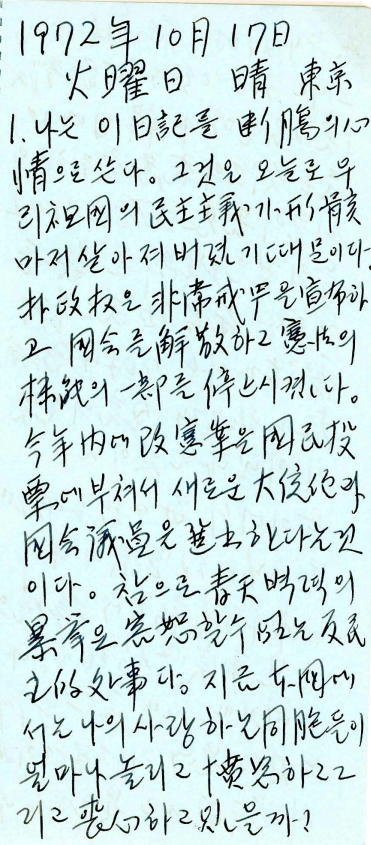 1972年 10月 17日
火曜日 晴 東京
1. 나는 이 日記를 斷腸의 心
情으로 쓴다. 그것은 오늘로 우
리 祖國의 民主主義가 形骸
마저 살아져 버렸기 때문이다.
朴政权은 非常戒罒을 宣布하
고 國会를 解散하고 憲法의
機能의 一部를 停止시켰다.
今年內에 改憲案을 國民投
票에 부쳐서 새로운 大統領과
國会議員을 選出한다는 것
이다. 참으로 靑天벽력의
暴擧요 容恕할 수 없는 反民
主的 处事다. 지금 本國에
서는 나의 사랑하는 同胞들이
얼마나 놀라고 憤怒하고 그
리고 喪心하고 있을까?